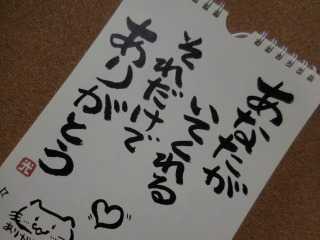 あなたが
いてくれる
それだけで
ありがとう
光